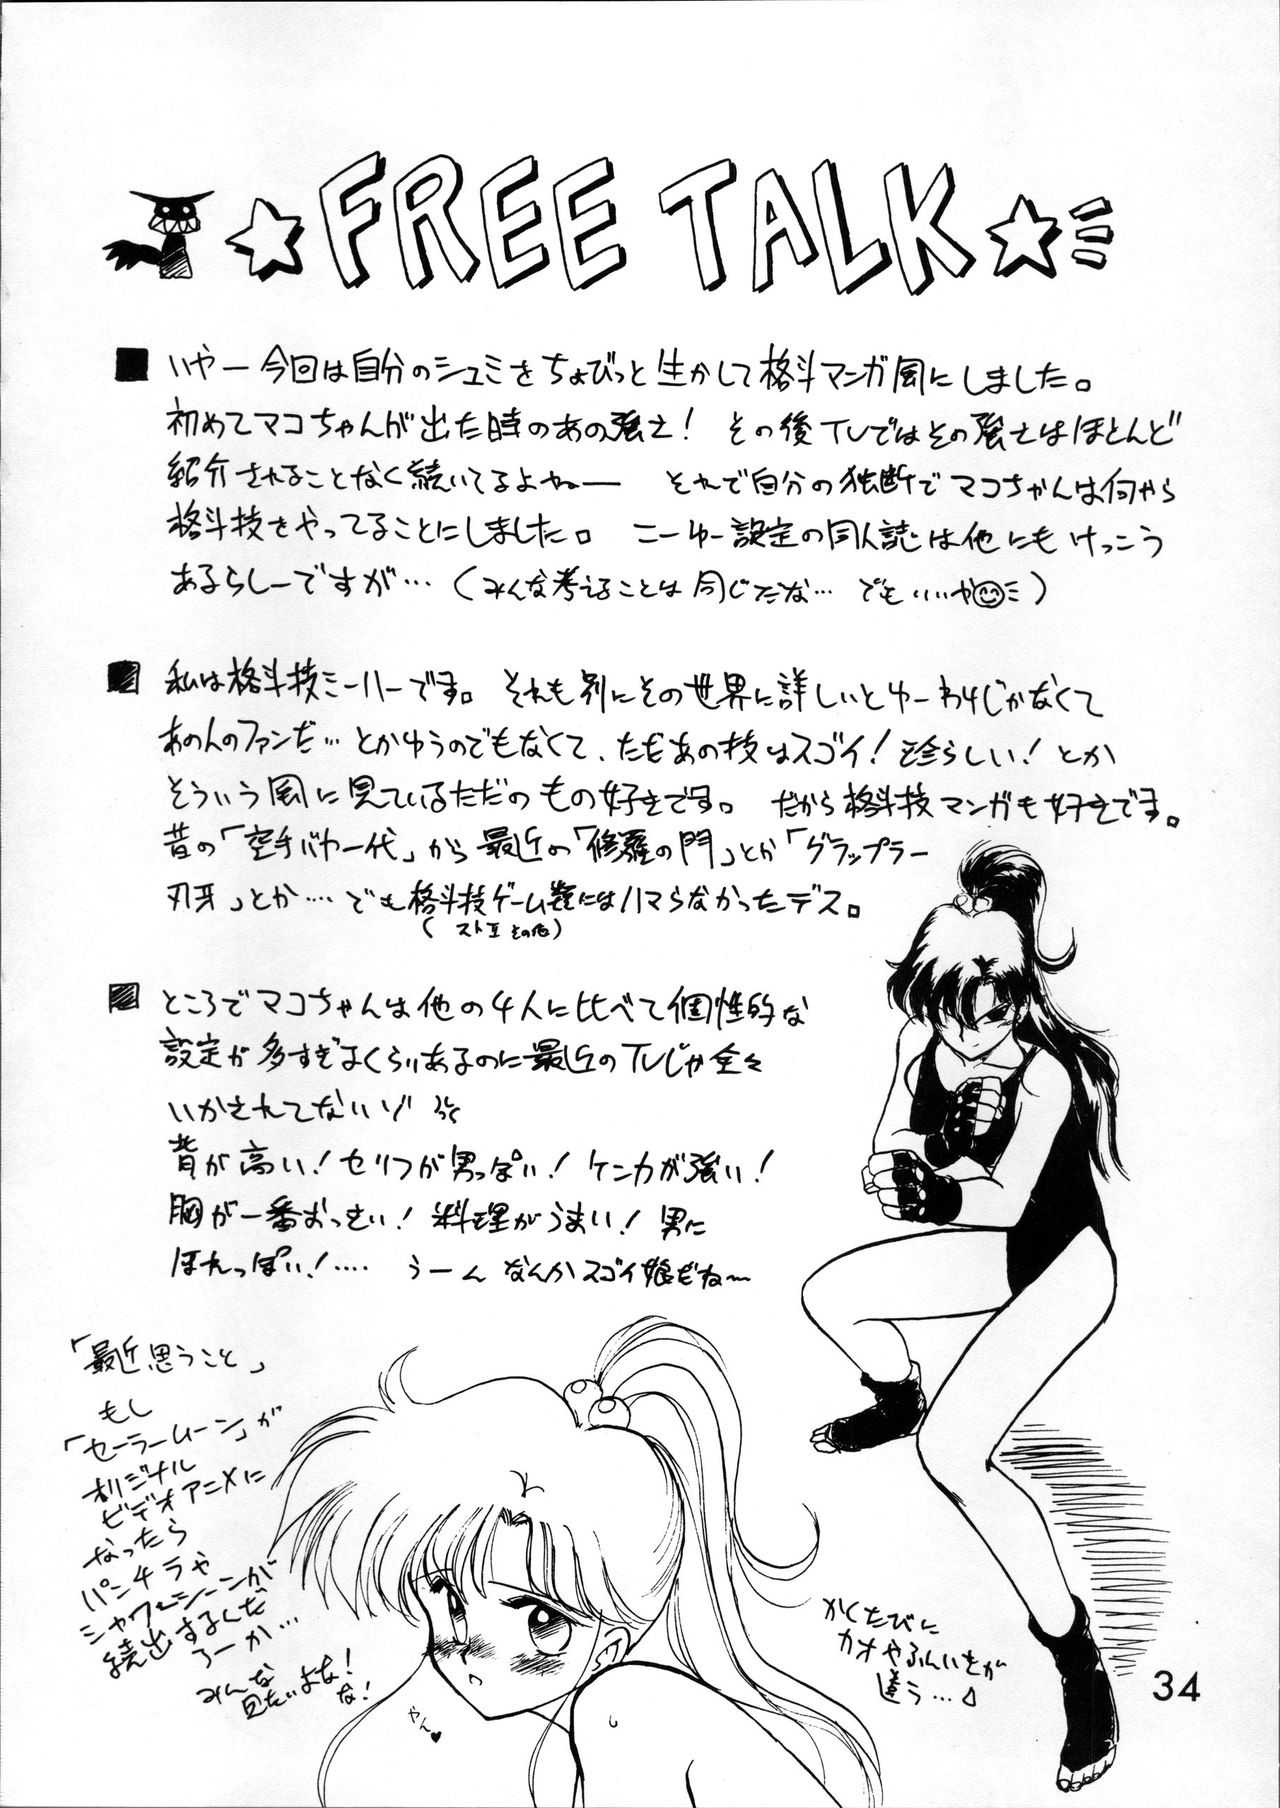 FREE TALK
いやー今回は自分のシュミをちょびっと生かして格斗マンガ風にしました。
初めてマコちゃんが出た時のあの強さ! その後TVではその強さはほとんど
紹介されることなく続いてるよねー それで自分の独断でマコちゃんは何やら
格斗技をやってることにしました。 こーゆー設定の同人誌は他にもけっこう
あるらしーですが…(みんな考えることは同じだな… でもいいや)
私は格斗技ミーハーです。それも別にその世界に詳しいとゆーわけじゃなくて
あの人のファンだ…とかゆうのでもなくて、ただあの技はスゴイ!珍らしい!とか
そういう風に見ているただのもの好きです。だから格斗技マンガも好きです。
昔の「空手バカ一代」から最近の「修羅の門」とか「グラップラー
刃牙」とか…でも格斗技ゲーム類にはハマらなかったデス。
(ストⅡその他)
ところでマコちゃんは他の4人に比べて個性的な
設定が多すぎるくらいあるのに最近のTVじゃ全々
いかされてないゾ
背が高い!セリフが男っぽい!ケンカが強い!
胸が一番おっきい!料理がうまい!男に
ほれっぽい!…. うーんなんかスゴイ娘だね〜
「最近思うこと」
もし
「セーラームーン」が
オリジナル
ビデオアニメに
なったら
パンチラや
シャワーシーンが
続出するんだ
ろーか…
みんな
見たいよな!
な!
やん♥
かくたびに
カオやふんいきが
違う…
34